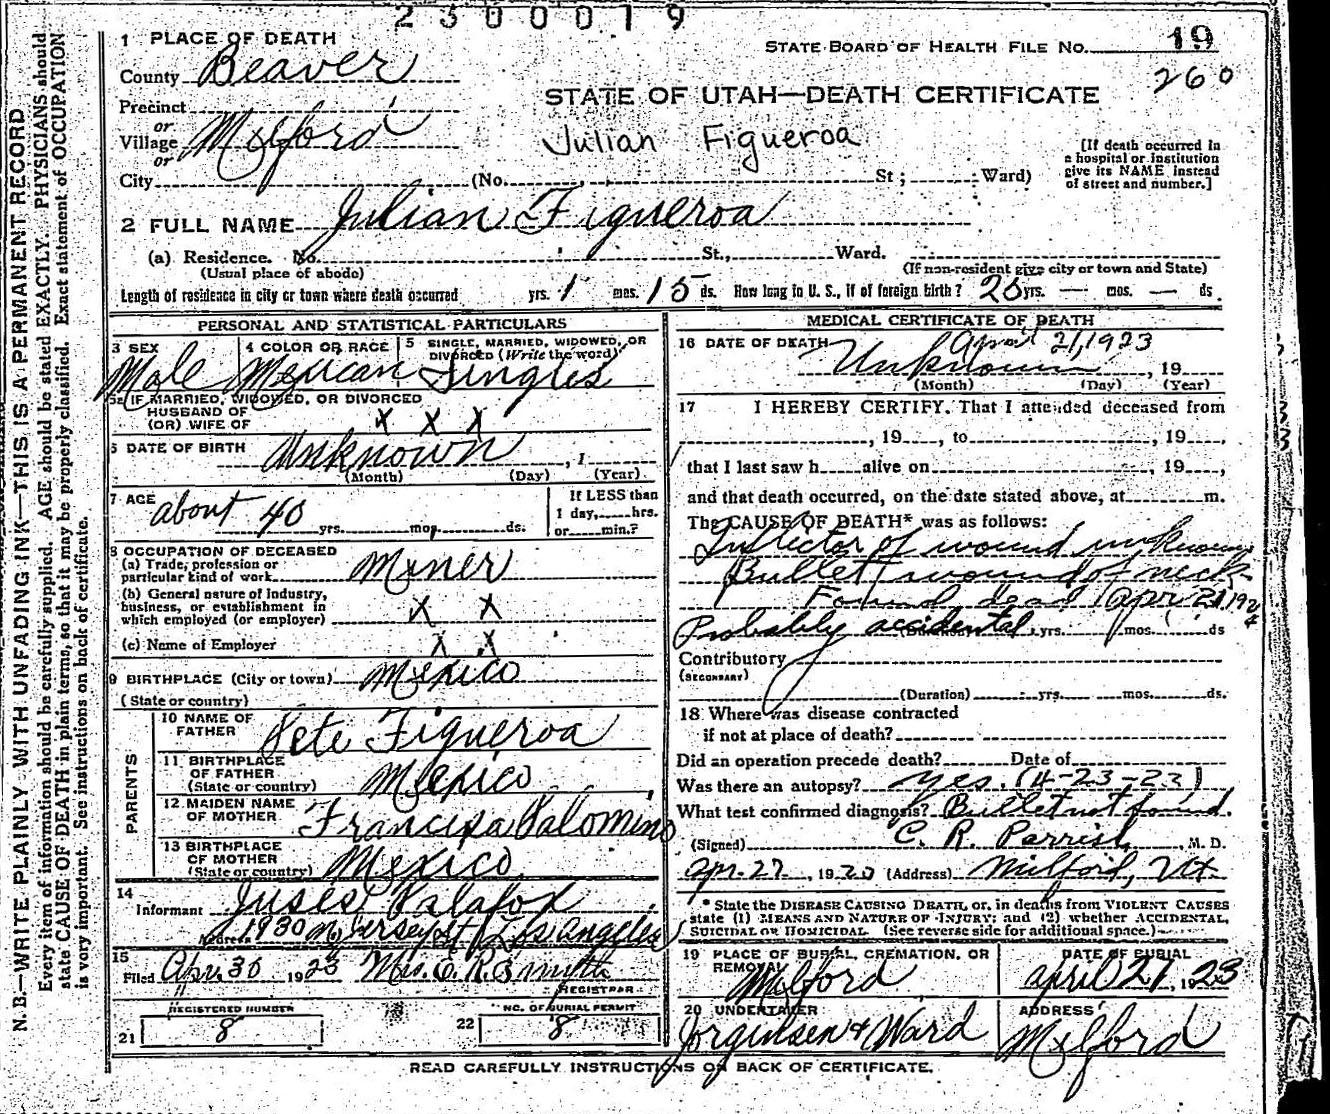 2300019
1 PLACE OF DEATH
STATE BOARD OF HEALTH FILE No. 19
260
County Beaver
Precinct
or
Village Milford
or
City (No. St; Ward)
STATE OF UTAH—DEATH CERTIFICATE
Julian Figueroa
[If death occurred in
a hospital or institution
give its NAME instead
of street and number.]
2 FULL NAME Julian Figueroa
(a) Residence. No. St., Ward.
(Usual place of abode) (If non-resident give city or town and State)
Length of residence in city or town where death occurred yrs. 1 mos. 15 ds. How long in U. S., if of foreign birth? yrs. — mos. — ds
PERSONAL AND STATISTICAL PARTICULARS
3 SEX 4 COLOR OR RACE 5 SINGLE, MARRIED, WIDOWED, OR
DIVORCED (Write the word)
Male Mexican Single
5a IF MARRIED, WIDOWED, OR DIVORCED
HUSBAND OF
(OR) WIFE OF X X X
6 DATE OF BIRTH Unknown , 1
(Month) (Day) (Year)
7 AGE about 40 yrs. mos. ds.
If LESS than
1 day, hrs.
or min.?
8 OCCUPATION OF DECEASED
(a) Trade, profession or
particular kind of work Miner
(b) General nature of industry,
business, or establishment in
which employed (or employer) X X
(c) Name of Employer X X
9 BIRTHPLACE (City or town) Mexico
(State or country)
PARENTS
10 NAME OF
FATHER Pete Figueroa
11 BIRTHPLACE
OF FATHER
(State or country) Mexico
12 MAIDEN NAME
OF MOTHER Francisca Palomino
13 BIRTHPLACE
OF MOTHER
(State or country) Mexico
14
Informant Palafox
Address 1930 Los Angeles
15
Filed Apr. 30 1923 Mrs. E. R. Smith
REGISTRAR
REGISTERED NUMBER NO. OF BURIAL PERMIT
21 8 22 8
MEDICAL CERTIFICATE OF DEATH
16 DATE OF DEATH April 21, 1923
Unknown , 19
(Month) (Day) (Year)
17 I HEREBY CERTIFY. That I attended deceased from
, 19 , to , 19 ,
that I last saw h alive on , 19 ,
and that death occurred, on the date stated above, at m.
The CAUSE OF DEATH* was as follows:
Inflictor of wound unknown
Bullet wound of neck
Found dead Apr 21, 192
Probably accidental yrs. mos. ds
Contributory
(SECONDARY)
(Duration) yrs. mos. ds.
18 Where was disease contracted
if not at place of death?
Did an operation precede death? Date of
Was there an autopsy? yes. (4-23-23)
What test confirmed diagnosis? Bullet not found.
(Signed) C. R. Parrish, M. D.
Apr. 27, 19 (Address) Milford, Ut
* State the DISEASE CAUSING DEATH, or, in deaths from VIOLENT CAUSES
state (1) MEANS AND NATURE OF INJURY; and (2) whether ACCIDENTAL,
SUICIDAL OR HOMICIDAL (See reverse side for additional space.)
19 PLACE OF BURIAL, CREMATION, OR
REMOVAL Milford
DATE OF BURIAL
April 27, 1923
20 UNDERTAKER
Jorgensen & Ward
ADDRESS
Milford
READ CAREFULLY INSTRUCTIONS OR BACK OF CERTIFICATE.
N. B.—WRITE PLAINLY WITH UNFADING INK—THIS IS A PERMANENT RECORD
Every item of information should be carefully supplied. AGE should be stated EXACTLY. PHYSICIANS should
state CAUSE OF DEATH in plain terms, so that it may be properly classified. Exact statement of OCCUPATION
is very important. See instructions on back of certificate.